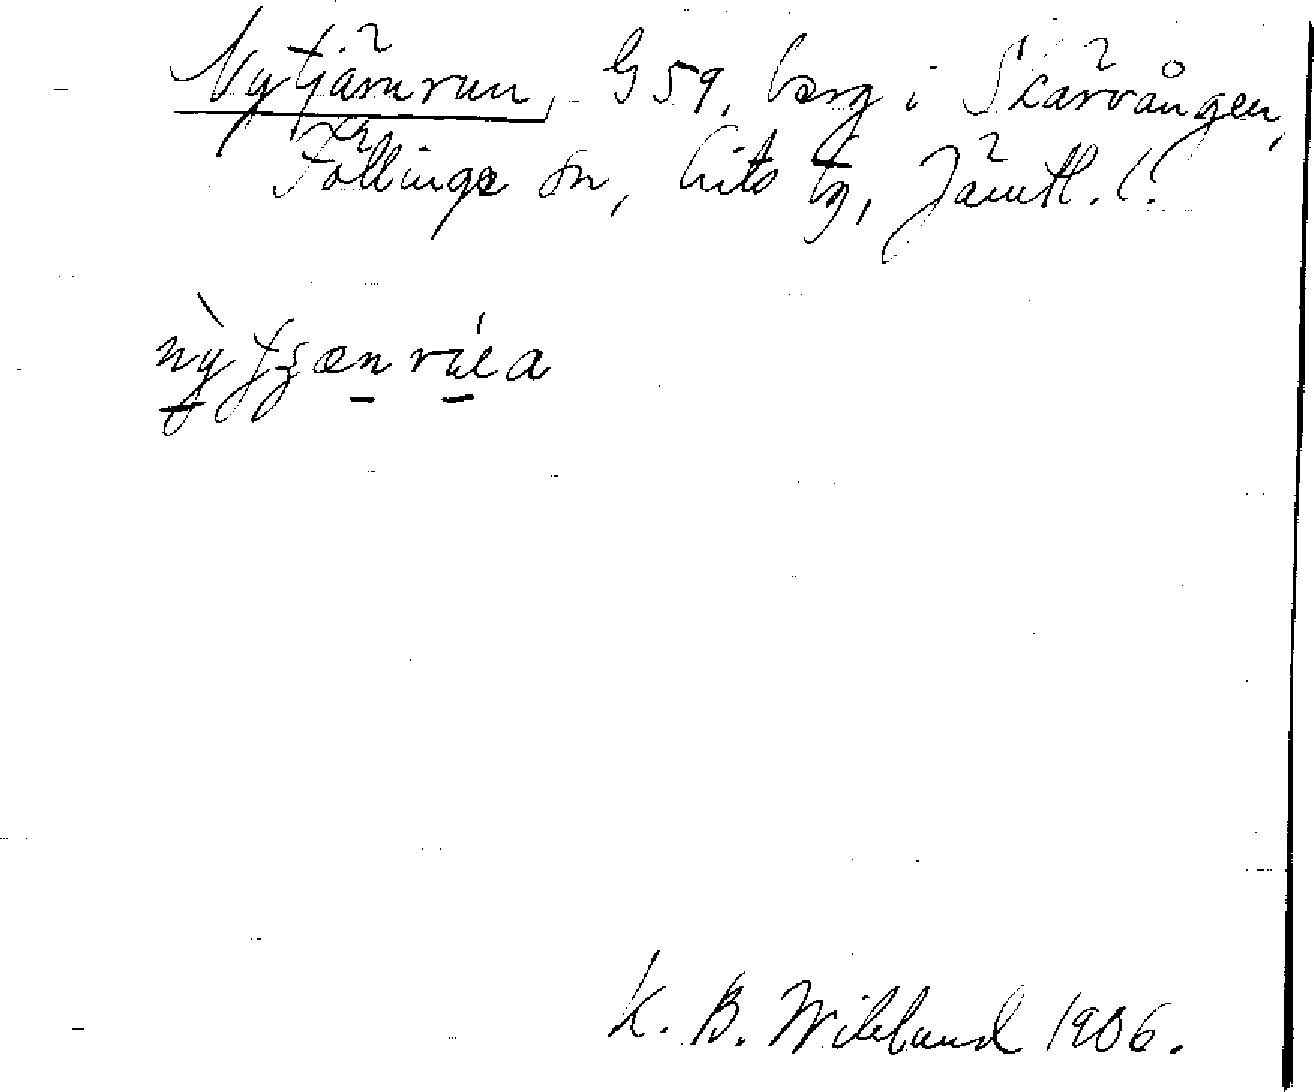 Nytjärnrun, G 59, berg i Skärvången,
Föllinge sn, Lits tg, Jämtl. l.
K. B. Wiklund 1906.